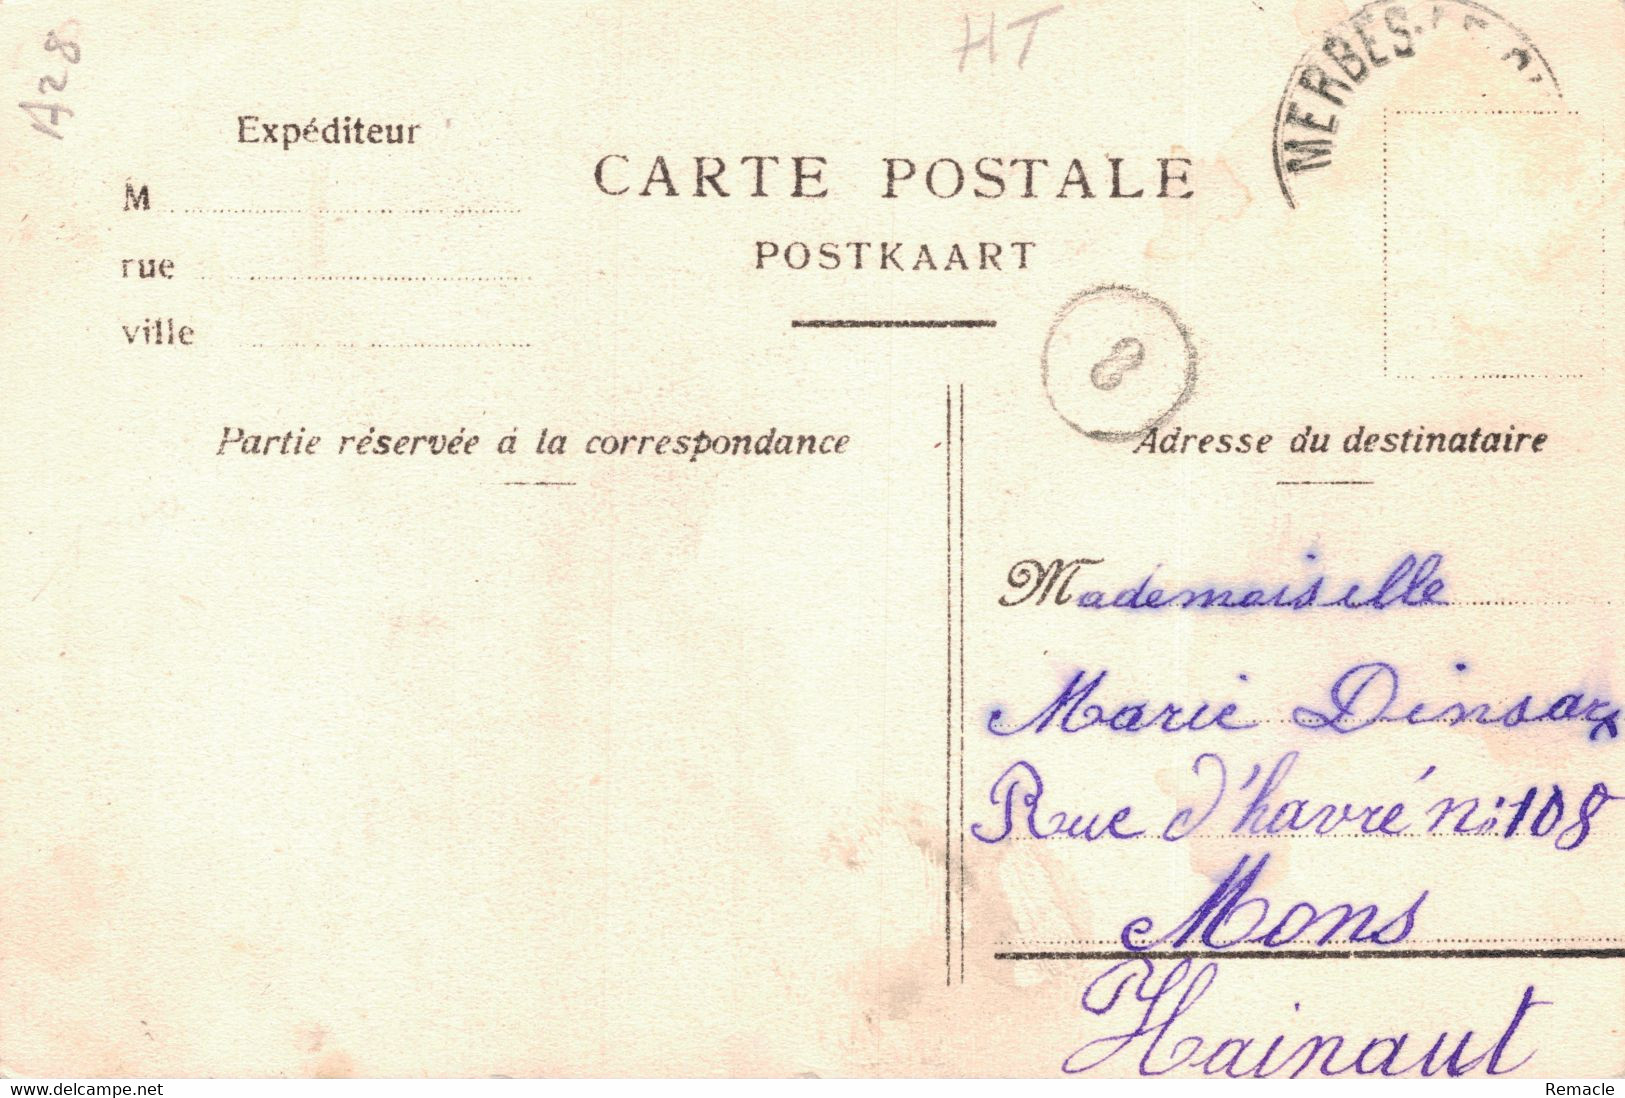 A28
HT
MERBES-
Expéditeur
M
CARTE POSTALE
rue
POSTKAART
ville
8
Partie réservée à la correspondance
Adresse du destinataire
Mademoiselle
Marie Dinsart
Rue d'havré No: 108
Mons
Hainaut
www.delcampe.net
Remacle